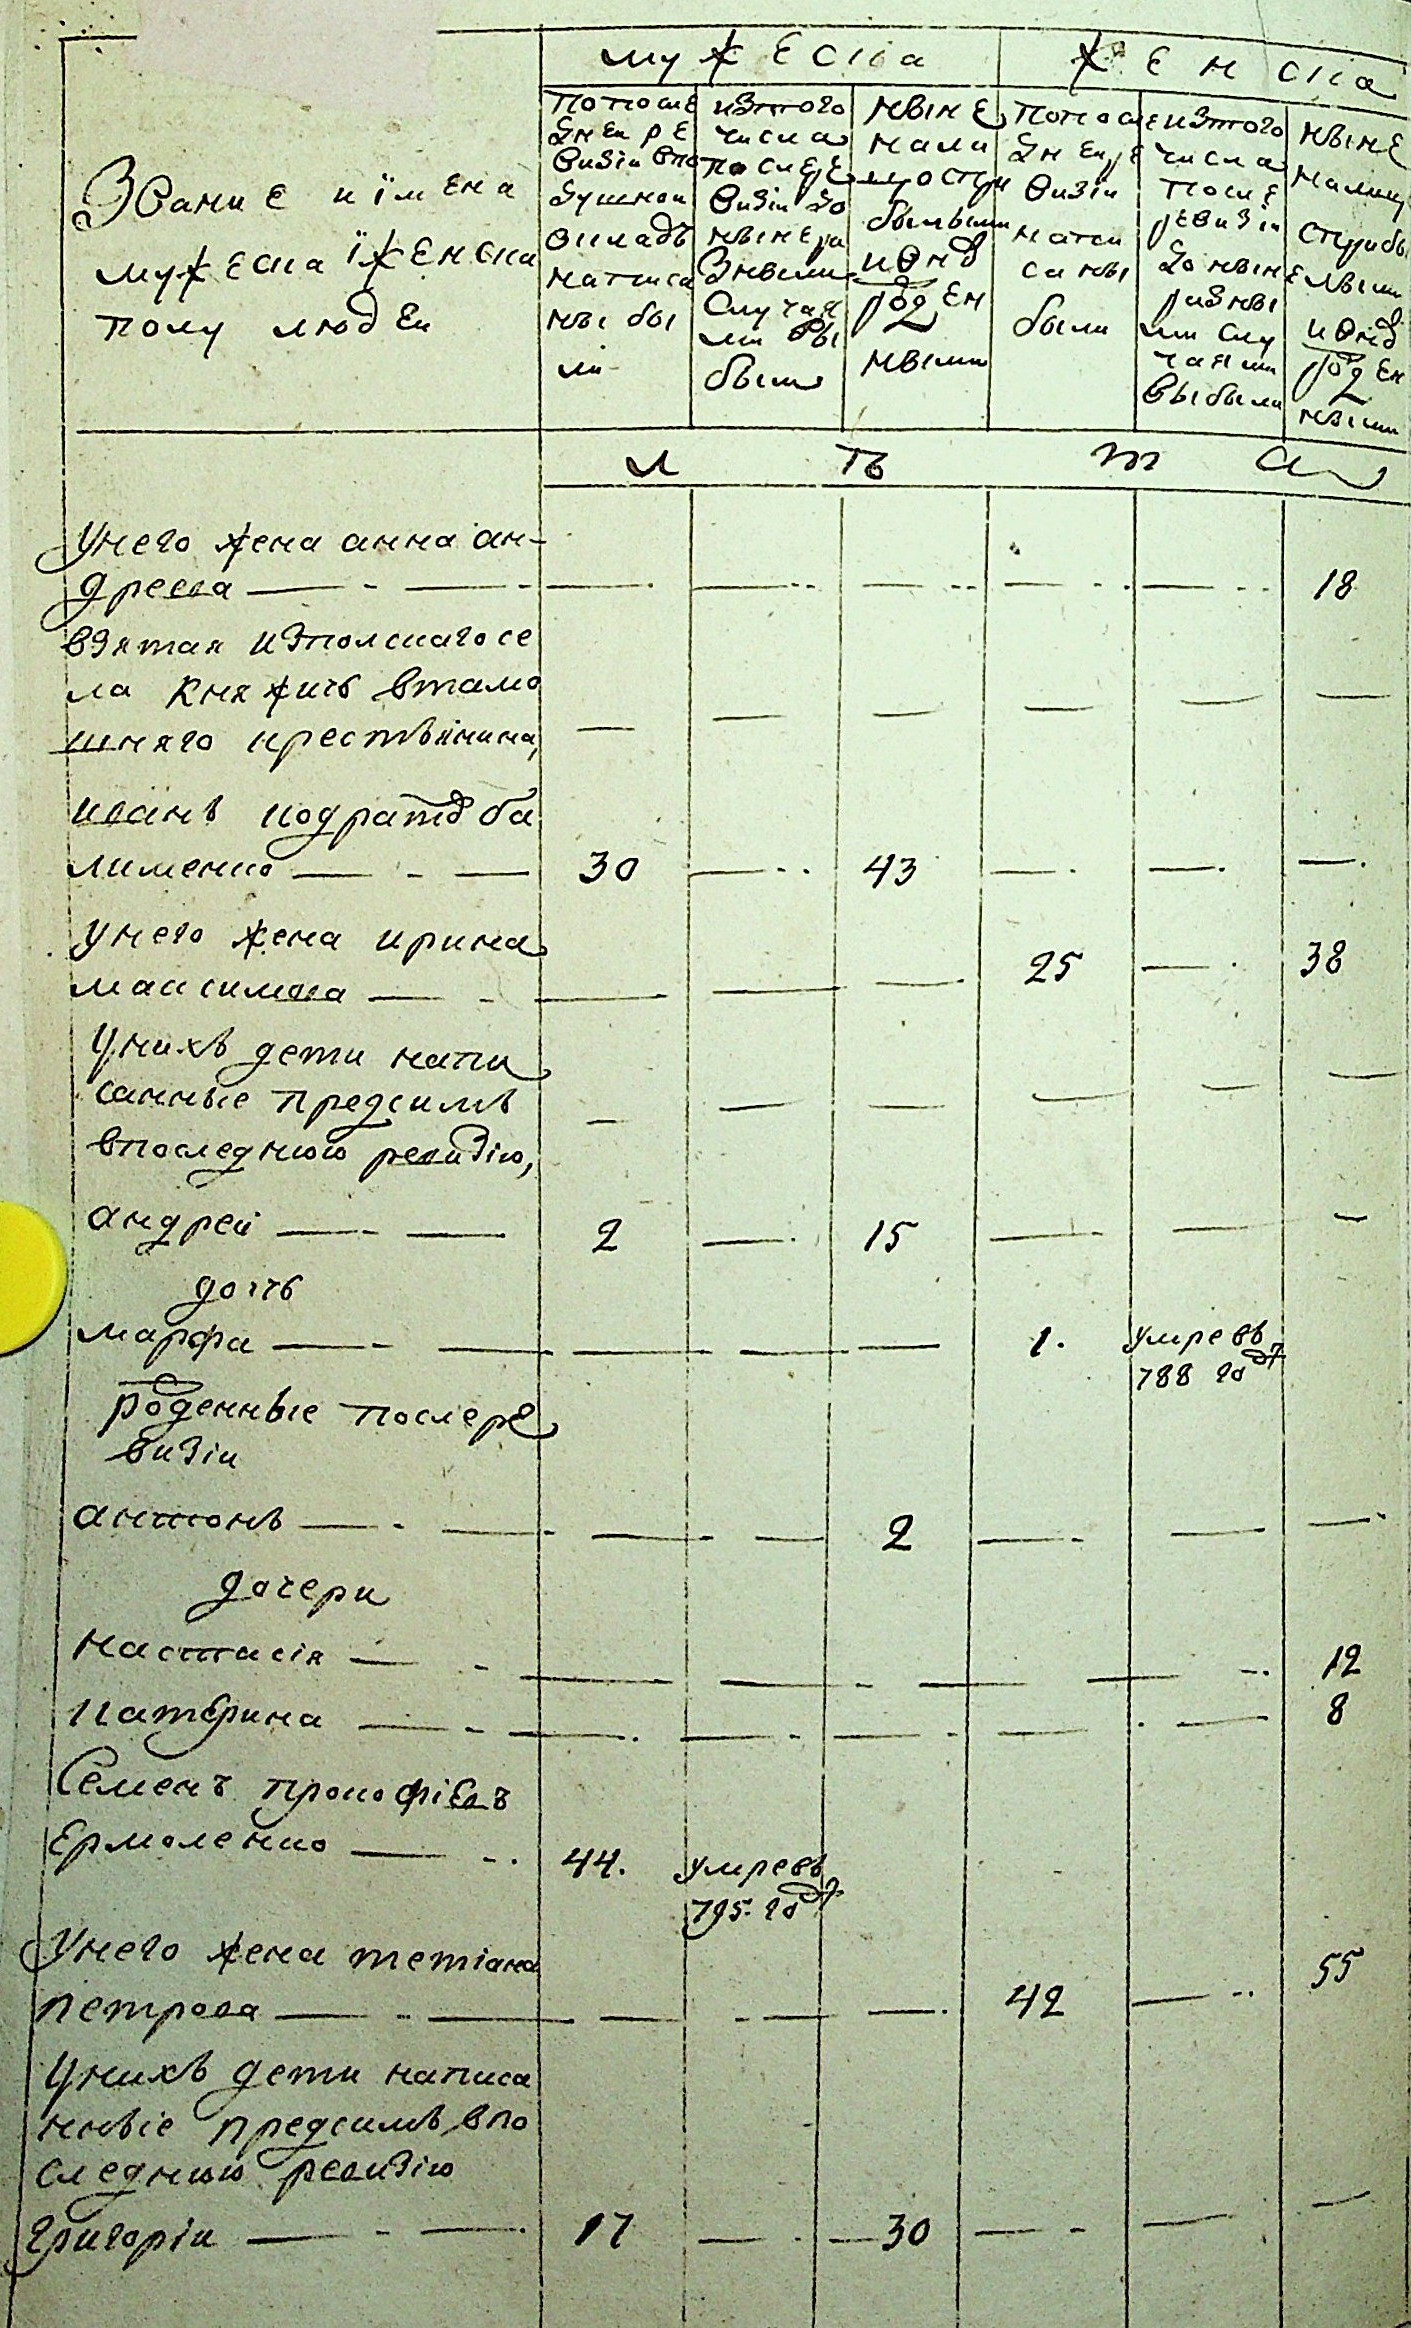 мужеска
женска
Звание иїмена
мужеска їженска
полу людеи
попосле
днеи ре
визіи впо
душнои
окладъ
написа
ны бы
ли
изтого
числа
послере
визіи до
ныне ра
зными
случая
ми вы
были
ныне
нали
цо спри
былыми
ивнѡ
рожден
ными
попосле
днеи ре
визіи
напи
саны
были
изтого
числа
после
ревизіи
до нын
разны
ми слу
чаями
выбыли
ныне
налицо
сприбы
лыми
ивнѡ
рожден
ными
л ѣ т а
Унего жена анна ан-
дреева 18
взятая изполскаго се
ла княжичъ втамо
шняго крестьянина,
иванъ кодратѡ ба
лименко 30 43
унего жена ирина
максимова 25 38
Унихъ дети напи
санные предсимъ
впоследнюю ревизію,
андрей 2 15
дочь
марфа 1. умре въ
788 году
рожденные послере
визіи
антонъ 2
дочери
настасія 12
катерина 8
Семенъ прокофіевъ
Ермоленко 44. умре въ
795 году
Унего жена тетіана
петрова 42 55
Унихъ дети написа
нныіе предсимъ впо
следнюю ревизію
григоріи 17 30